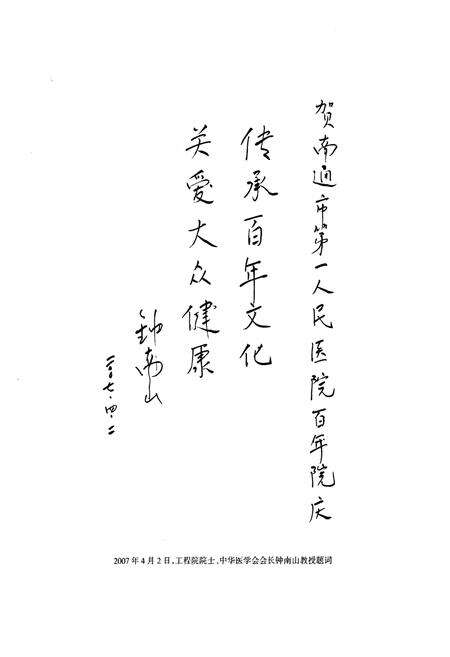 贺南通市第一人民医院百年院庆
传承百年文化
关爱大众健康
钟南山
二〇〇七·四·二
2007年4月2日,工程院院士、中华医学会会长钟南山教授题词